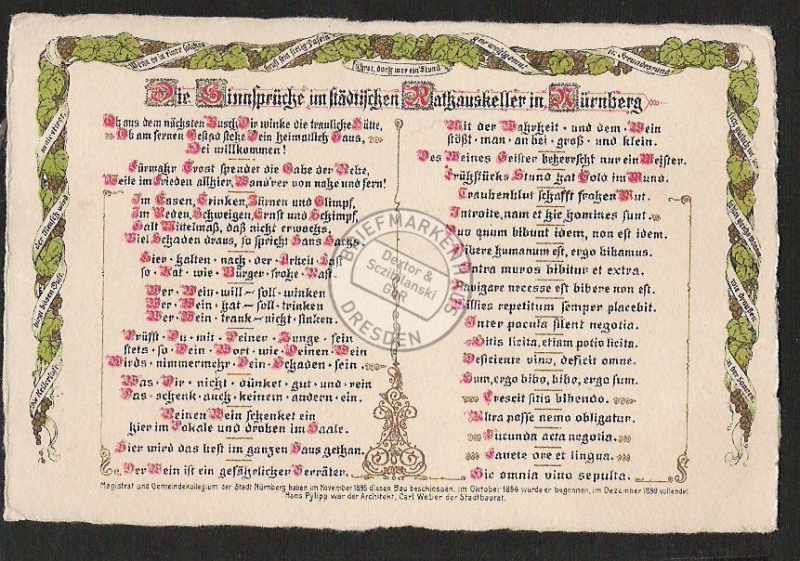 Die Sinnsprüche im städtischen Rathauskeller in Nürnberg
Ob aus dem nächsten Busch Dir winke die trauliche Hütte,
Ob am fernen Gestad stehe Dein heimatlich Haus,
Sei willkommen!
Fürwahr Trost spendet die Gabe der Rebe,
Weile im Frieden allhier, Wand'rer von nahe und fern!
Im Essen, Trinken, Zürnen und Glimpf,
Im Reden, Schweigen, Ernst und Schimpf,
Halt Mittelmaß, daß nicht erwachs,
Viel Schaden draus, so spricht Hans Sachs.
Hier · halten · nach · der · Arbeit · Last
so · Rat · wie · Bürger · frohe · Rast.
Wer · Wein · will — soll · winken
Wer · Wein · hat — soll · trinken
Wer · Wein · trank — nicht · sinken.
Prüfst · Du · mit · Deiner · Zunge · fein
stets · so · Dein · Wort · wie · Deinen · Wein
Wirds · nimmermehr · Dein · Schaden · sein.
Was · Dir · nicht · dünket · gut · und · rein
Das · schenk · auch · keinem · andern · ein.
Reinen Wein schenket ein
hier im Lokale und droben im Saale.
Hier wird das best im ganzen Haus gethan.
Der Wein ist ein gefährlicher Verräter.
Mit der Wahrheit · und dem · Wein
stößt · man · an bei · groß · und klein.
Des Weines Geister beherrscht nur ein Meister.
Frühstücks Stund hat Gold im Mund.
Traubenblut schafft frohen Mut.
Introite, nam et hic homines sunt.
Duo quum bibunt idem, non est idem.
Bibere humanum est, ergo bibamus.
Intra muros bibitur et extra.
Navigare necesse est bibere non est.
Millies repetitum semper placebit.
Inter pocula silent negotia.
Sitis licita, etiam potio licita.
Deficiente vino, deficit omne.
Sum, ergo bibo, bibo, ergo sum.
Crescit sitis bibendo.
Ultra posse nemo obligatur.
Jucunda acta negotia.
Favete ore et lingua.
Sic omnia vino sepulta.
Magistrat und Gemeindekollegium der Stadt Nürnberg haben im November 1895 diesen Bau beschlossen, im Oktober 1896 wurde er begonnen, im Dezember 1898 vollendet.
Hans Pylipp war der Architekt, Carl Weber der Stadtbaurat.
BRIEFMARKENHAUS
Dextor &
Sczimlanski
GbR
DRESDEN